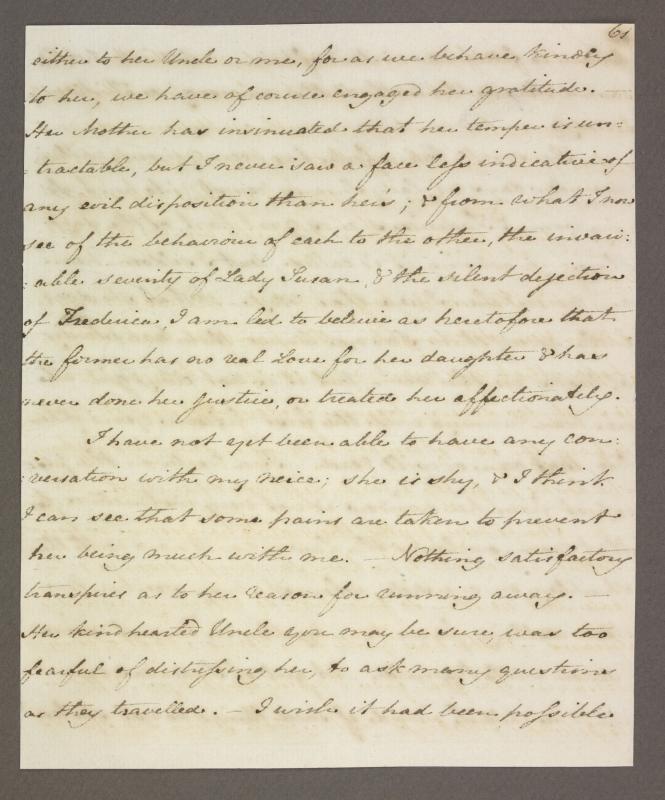 61
either to her Uncle or me, for as we behave kindly
to her, we have of course engaged her gratitude. —
Her Mother has insinuated that her temper is un:
:tractable, but I never saw a face less indicative of
any evil disposition than her's; & from what I now
see of the behaviour of each to the other, the invari:
:able severity of Lady Susan, & the silent dejection
of Frederica, I am led to beleive as heretofore that
the former has no real Love for her daughter & has
never done her justice, or treated her affectionately.
I have not yet been able to have any con:
:versation with my neice; she is shy, & I think
I can see that some pains are taken to prevent
her being much with me. — Nothing satisfactory
transpires as to her reason for running away. —
Her kindhearted Uncle you may be sure, was too
fearful of distressing her, to ask many questions
as they travelled. — I wish it had been possible